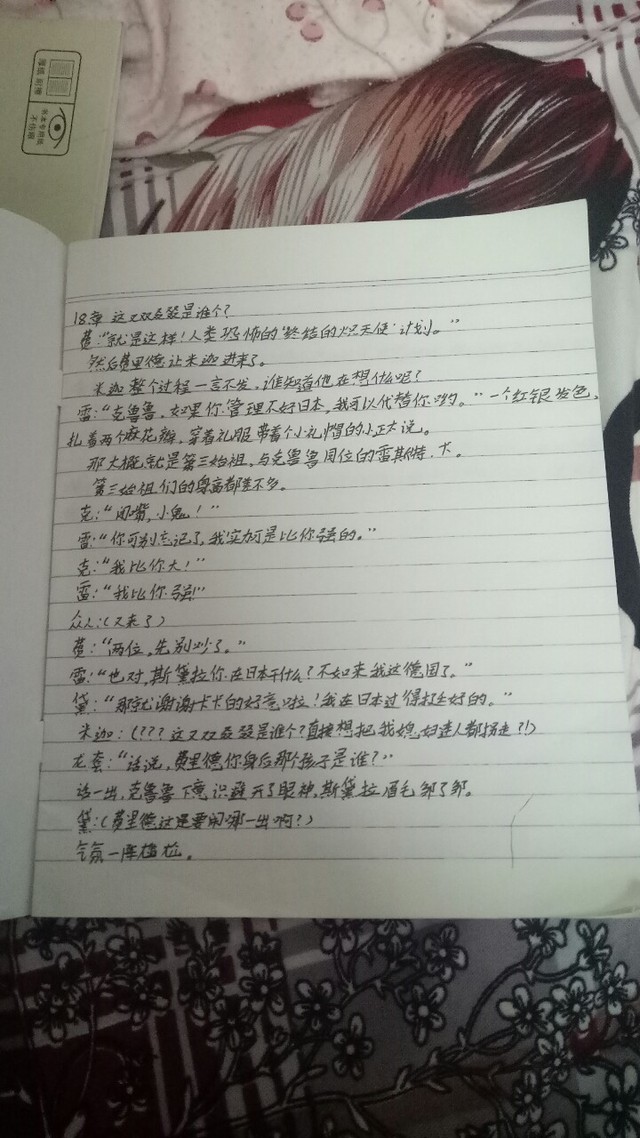 18章 这又双叒叕是谁个？
费："就是这样！人类恐怖的'终结的炽天使'计划。"
然后费里德让米迦进来了。
米迦整个过程一言不发，谁知道他在想什么呢？
雷："克鲁鲁，如果你管理不好日本，我可以代替你哟。"一个红银发色，
扎着两个麻花辫，穿着礼服带着个小礼帽的小正太说。
那大概就是第三始祖，与克鲁鲁同位的雷斯特·卡。
第三始祖们的身高都差不多。
克："闭嘴，小鬼！"
雷："你可别忘记了，我实力可是比你强的。"
克："我比你大！"
雷："我比你强！"
众人：（又来了）
费："两位，先别吵了。"
雷："也对，斯黛拉你在日本干什么？不如来我这德国了。"
黛："那就谢谢卡卡的好意啦！我在日本过得挺好的。"
米迦：（？？？这又双叒叕是谁个？直接想把我媳妇连人都拐走？！）
龙套："话说，费里德你身后那个孩子是谁？"
话一出，克鲁鲁下意识避开了眼神，斯黛拉眉毛邹了邹。
黛：（费里德这是要闹哪一出啊？）
气氛一阵尴尬。